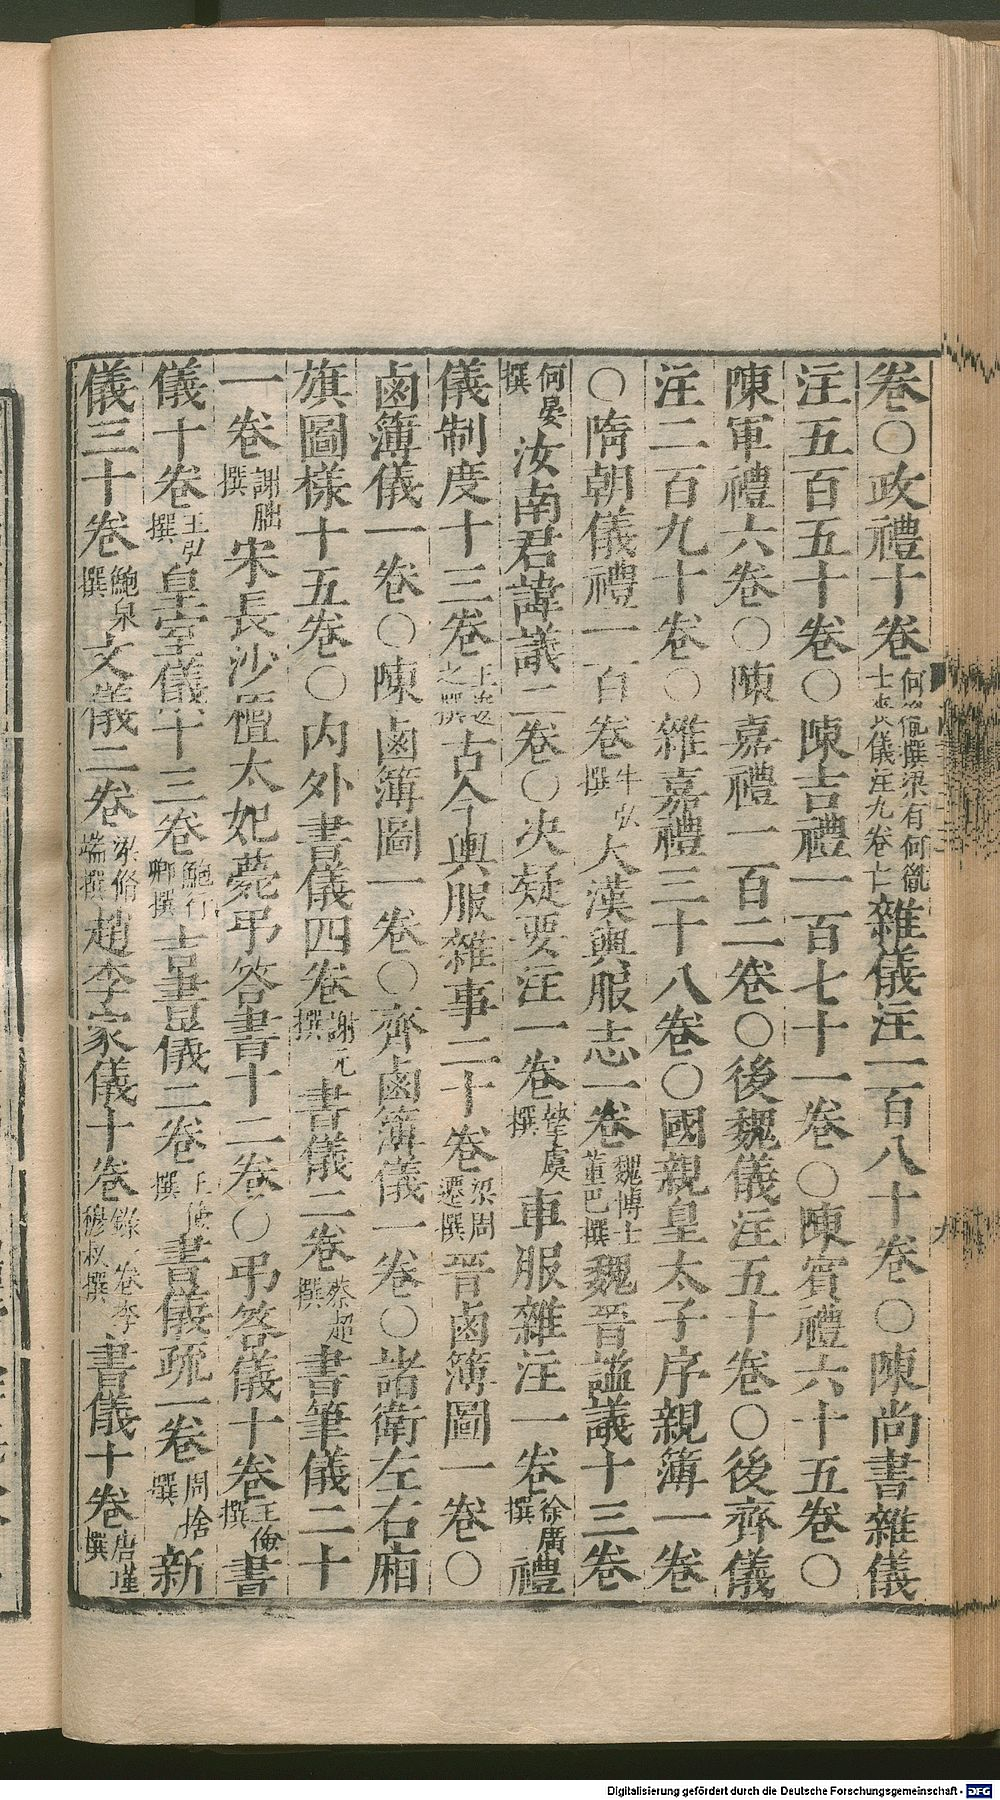 卷○政禮十卷何佟撰梁有何胤士喪儀注九卷亡雜儀注一百八十卷○陳尚書雜儀
注五百五十卷○陳吉禮一百七十一卷○陳賓禮六十五卷○
陳軍禮六卷○陳嘉禮一百二卷○後魏儀注五十卷○後齊儀
注二百九十卷○雜嘉禮三十八卷○國親皇太子序親簿一卷
○隋朝儀禮一百卷牛弘撰大漢輿服志一卷魏博士董巴撰魏晉謚議十三卷
何晏撰汝南君諱議二卷○決疑要注一卷摯虞撰車服雜注一卷徐廣撰禮
儀制度十三卷王逡之撰古今輿服雜事二十卷梁周遷撰晉鹵簿圖一卷○
鹵簿儀一卷○陳鹵簿圖一卷○齊鹵簿儀一卷○諸衛左右廂
旗圖樣十五卷○內外書儀四卷謝元撰書儀二卷蔡超撰書筆儀二十
一卷謝朏撰宋長沙檀太妃薨弔答書十二卷○弔答儀十卷王儉撰書
儀十卷王弘撰皇室儀十三卷鮑行卿撰吉書儀二卷王儉撰書儀疏一卷周捨撰新
儀三十卷鮑泉撰文儀二卷梁脩端撰趙李家儀十卷錄一卷李穆叔撰書儀十卷唐瑾撰
Digitalisierung gefördert durch die Deutsche Forschungsgemeinschaft - DFG